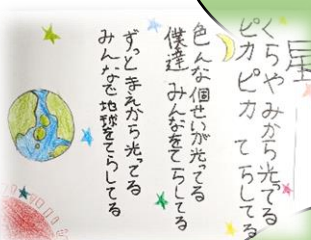 星
くらやみから光ってる
ピカピカ てらしてる
色んな個せいが光ってる
僕達 みんなをてらしてる
ずっとまえから光ってる
みんなで地球をてらしてる